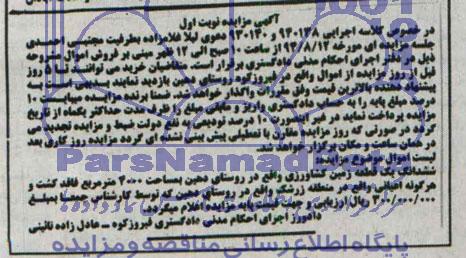 آگهی مزایده نوبت اول
در خصوص کلاسه اجرایی ۹۳۰۱۳۸ و ۹۳۰۱۳۰ دعوی لیلا غلامزاده بطرفیت مجتبی احمدی
جلسه مزایده ای مورخه ۹۴/۸/۱۳ از ساعت ۱۰ صبح الی ۱۲ ظهر مبنی بر فروش اموال مشروحه
ذیل در دفتر اجرای احکام مدنی دادگستری برگزار است. متقاضیان خرید می توانند تا ۵ روز
قبل از روز مزایده از اموال واقع در فیروزکوه روستای دهین بازدید نمایند
پیشنهاد دهنده بالاترین قیمت وفق مقررات واگذار خواهد شد. ضمنا برنده مزایده میبایست ۱۰
درصد مبلغ پایه را به حساب دادگستری واریز و مابقی مبلغ را ظرف مدت حداکثر یکماه از تاریخ
مزایده پرداخت نماید در غیر اینصورت ۱۰ درصد تودیعی به نفع دولت ضبط و مزایده تجدید می
گردد در صورتی که روز مزایده مقارن با تعطیلی پیش بینی نشده ای گردد مزایده روز کاری بعد
در همان ساعت و مکان برگزار خواهد شد.
لیست اموال موضوع مزایده:
ششدانگ یک قطعه زمین کشاورزی واقع در روستای دهین بمساحت ۳۰۰۰ مترمربع فاقد کشت و
هرگونه اعیانی واقع در منطقه زرشکی واقع در روستای دهین که توسط کارشناس رسمی بمبلغ
۳۰۰/۰۰۰/۰۰۰ ریال ارزیابی و جهت قیمت پایه مزایده اعلام میگردد.
دادورز اجرای احکام مدنی دادگستری فیروزکوه ـ عادل زاده نائینی
ParsNamad
پایگاه اطلاع رسانی مناقصه و مزایده